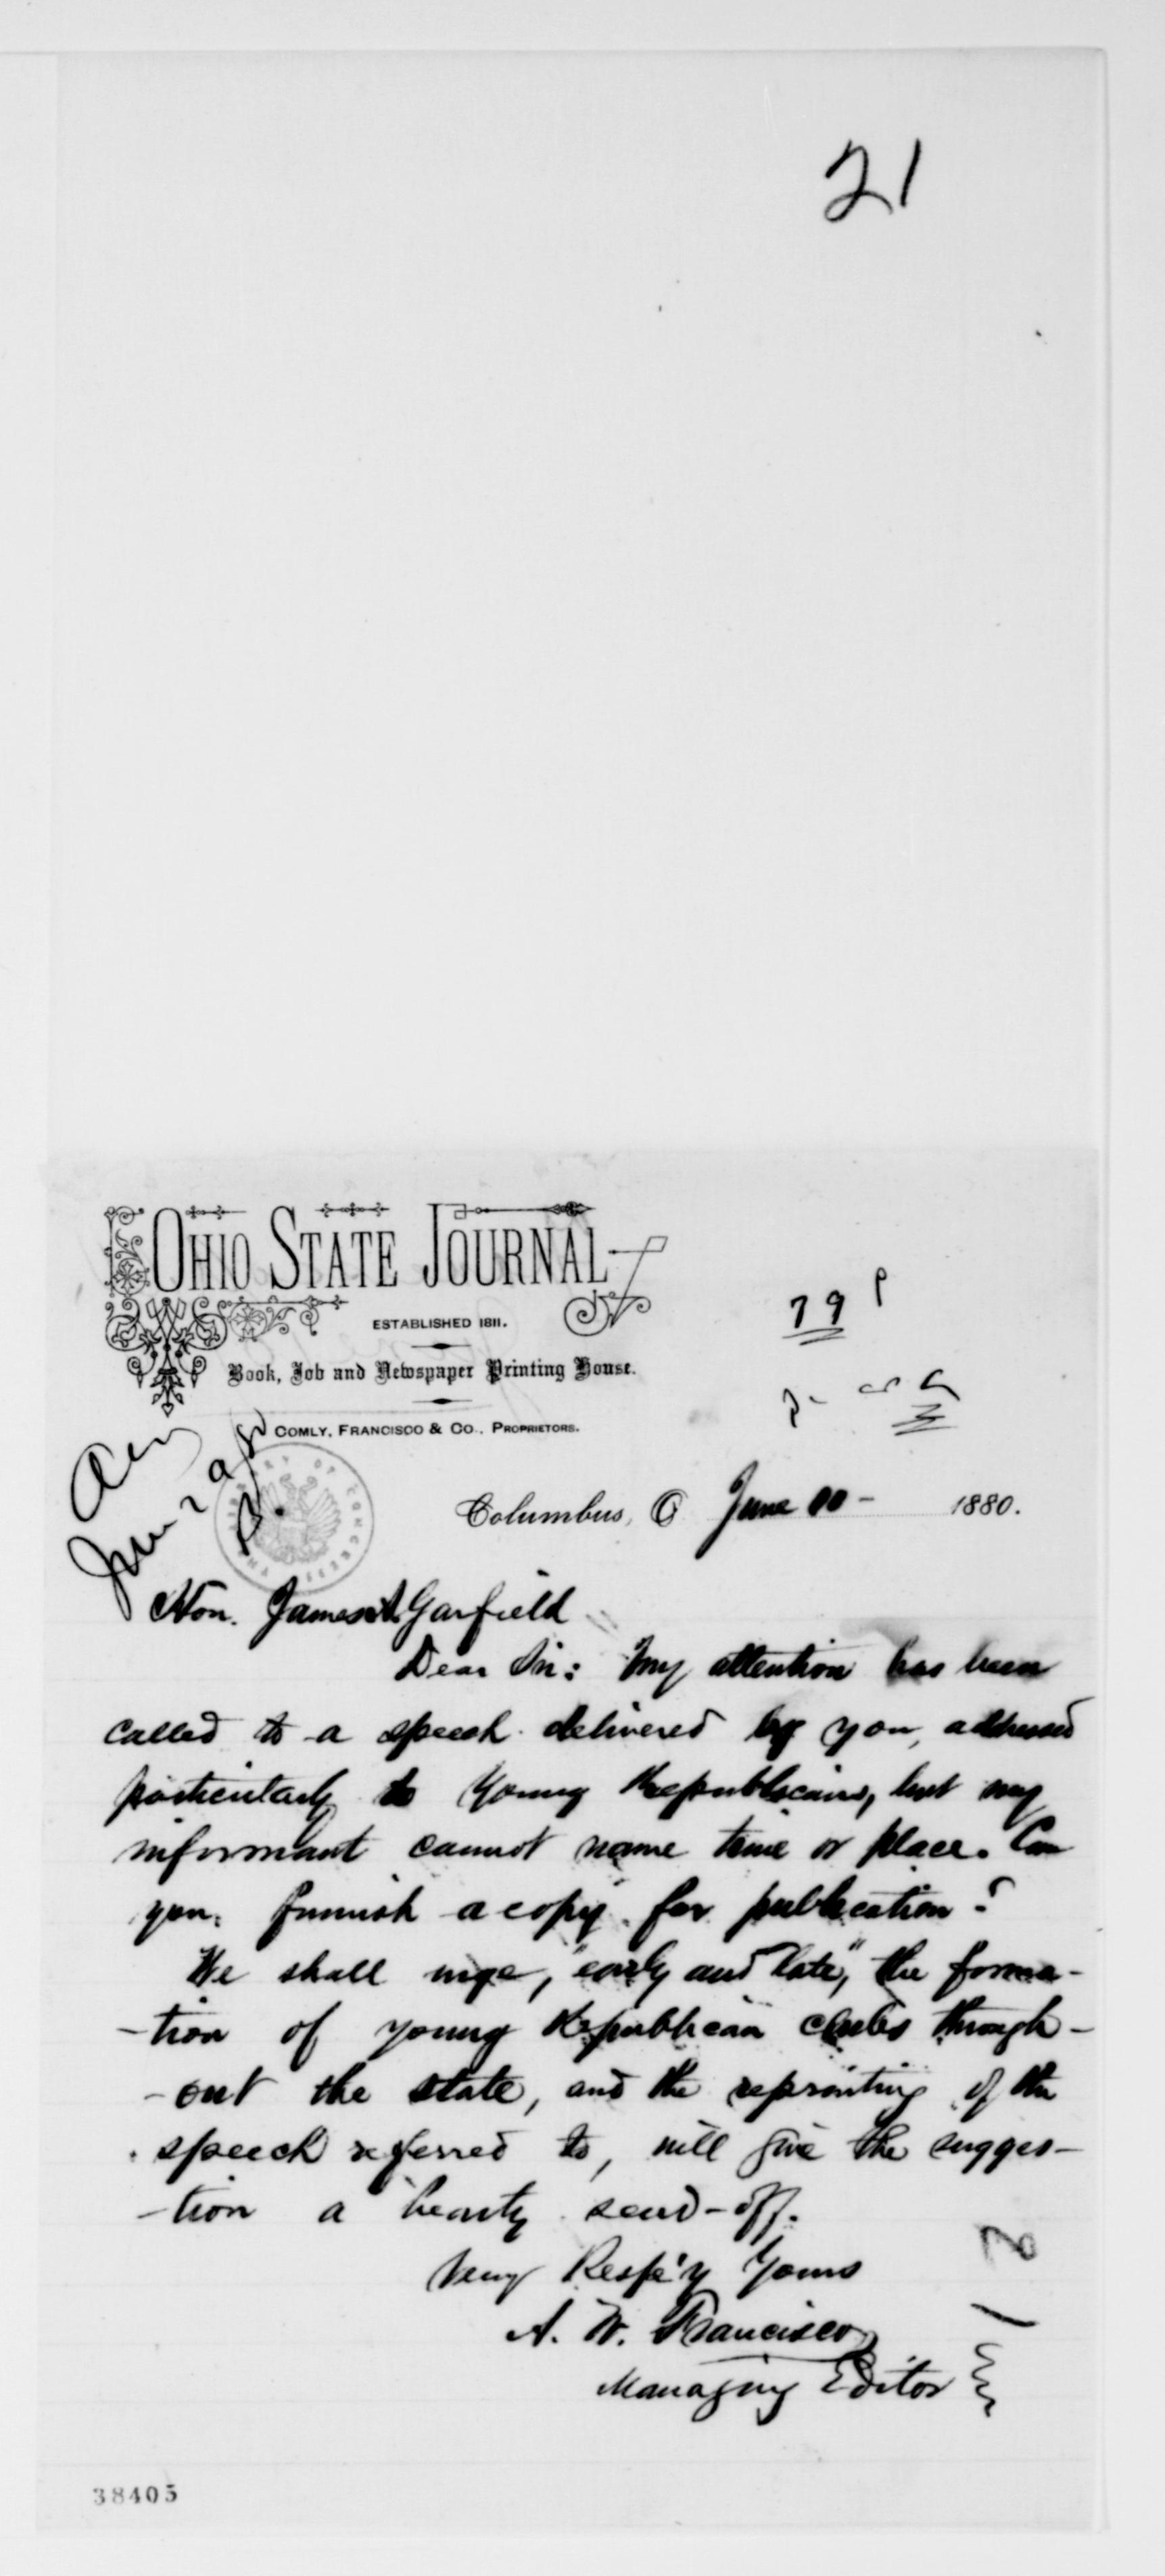 21
OHIO STATE JOURNAL
ESTABLISHED 1811.
Book, Job and Newspaper Printing House.
COMLY, FRANCISCO & CO., PROPRIETORS.
79
Columbus, O June 1880.
Hon. James A Garfield
Dear Sir: My attention has been
called to a speech delivered by you, addressed
particularly to Young Republicans, but my
informant cannot name time or place. Can
you furnish a copy for publication?
We shall urge, "early and late", the forma-
-tion of young Republican clubs through-
-out the state, and the reprinting of the
speech referred to, will give the sugges-
-tion a hearty send-off.
Very Resp'y Yours
A. W. Francisco
Managing Editor
38405